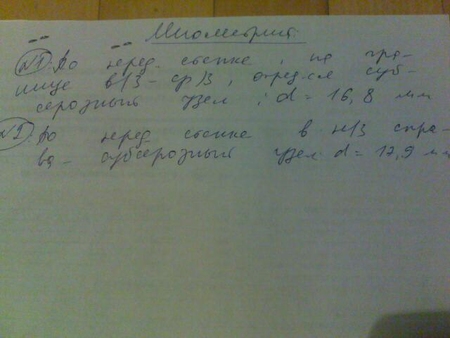 Миометрий
№1. По перед. стенке, на гра-
нице в/3 - ср/3, опред-ся суб-
серозный узел, d = 16,8 мм
№2. По перед. стенке в н/3 спра-
ва - субсерозный узел d = 17,9 мм